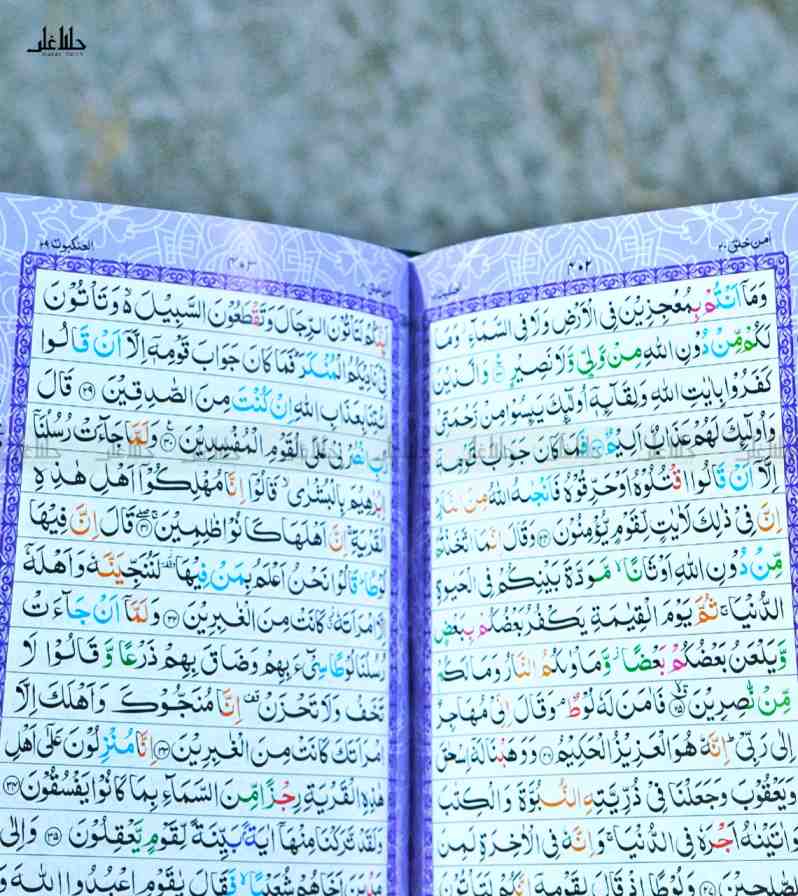 حلالغلر
امن خلق ٢٠
٤٠٢
وَمَآ اَنْتُمْ بِمُعْجِزِيْنَ فِى الْاَرْضِ وَلَا فِى السَّمَآءِ وَمَا
لَكُمْ مِّنْ دُوْنِ اللّٰهِ مِنْ وَّلِيٍّ وَّلَا نَصِيْرٍ ۝٢٢ وَالَّذِيْنَ
كَفَرُوْا بِاٰيٰتِ اللّٰهِ وَلِقَآئِهٖٓ اُولٰٓئِكَ يَئِسُوْا مِنْ رَّحْمَتِيْ
وَاُولٰٓئِكَ لَهُمْ عَذَابٌ اَلِيْمٌ ۝٢٣ فَمَا كَانَ جَوَابَ قَوْمِهٖٓ
اِلَّآ اَنْ قَالُوا اقْتُلُوْهُ اَوْ حَرِّقُوْهُ فَاَنْجٰىهُ اللّٰهُ مِنَ النَّارِ
اِنَّ فِيْ ذٰلِكَ لَاٰيٰتٍ لِّقَوْمٍ يُّؤْمِنُوْنَ ۝٢٤ وَقَالَ اِنَّمَا اتَّخَذْتُمْ
مِّنْ دُوْنِ اللّٰهِ اَوْثَانًا ۙ مَّوَدَّةَ بَيْنِكُمْ فِى الْحَيٰوةِ
الدُّنْيَا ۚ ثُمَّ يَوْمَ الْقِيٰمَةِ يَكْفُرُ بَعْضُكُمْ بِبَعْضٍ
وَّيَلْعَنُ بَعْضُكُمْ بَعْضًا ۡ وَّمَاْوٰىكُمُ النَّارُ وَمَا لَكُمْ
مِّنْ نّٰصِرِيْنَ ۝٢٥ فَاٰمَنَ لَهٗ لُوْطٌ ۘ وَقَالَ اِنِّيْ مُهَاجِرٌ
اِلٰى رَبِّيْ ۭ اِنَّهٗ هُوَ الْعَزِيْزُ الْحَكِيْمُ ۝٢٦ وَوَهَبْنَا لَهٗٓ اِسْحٰقَ
وَيَعْقُوْبَ وَجَعَلْنَا فِيْ ذُرِّيَّتِهِ النُّبُوَّةَ وَالْكِتٰبَ
وَاٰتَيْنٰهُ اَجْرَهٗ فِى الدُّنْيَا ۚ وَاِنَّهٗ فِى الْاٰخِرَةِ لَمِنَ
وَلُوْطًا اِذْ قَالَ لِقَوْمِهٖٓ اِنَّكُمْ لَتَاْتُوْنَ
العنكبوت ٢٩
٤٠٣
امن خلق ٢٠
اَئِنَّكُمْ لَتَاْتُوْنَ الرِّجَالَ وَتَقْطَعُوْنَ السَّبِيْلَ ۙ وَتَاْتُوْنَ
فِيْ نَادِيْكُمُ الْمُنْكَرَ ۭ فَمَا كَانَ جَوَابَ قَوْمِهٖٓ اِلَّآ اَنْ قَالُوا
ائْتِنَا بِعَذَابِ اللّٰهِ اِنْ كُنْتَ مِنَ الصّٰدِقِيْنَ ۝٢٩ قَالَ
رَبِّ انْصُرْنِيْ عَلَى الْقَوْمِ الْمُفْسِدِيْنَ ۝٣٠ وَلَمَّا جَآءَتْ رُسُلُنَآ
اِبْرٰهِيْمَ بِالْبُشْرٰى ۙ قَالُوْٓا اِنَّا مُهْلِكُوْٓا اَهْلِ هٰذِهِ
الْقَرْيَةِ ۚ اِنَّ اَهْلَهَا كَانُوْا ظٰلِمِيْنَ ۝٣١ قَالَ اِنَّ فِيْهَا
لُوْطًا ۭ قَالُوْا نَحْنُ اَعْلَمُ بِمَنْ فِيْهَا ۡ لَنُنَجِّيَنَّهٗ وَاَهْلَهٗٓ
اِلَّا امْرَاَتَهٗ ۡ كَانَتْ مِنَ الْغٰبِرِيْنَ ۝٣٢ وَلَمَّآ اَنْ جَآءَتْ
رُسُلُنَا لُوْطًا سِيْٓءَ بِهِمْ وَضَاقَ بِهِمْ ذَرْعًا وَّقَالُوْا لَا
تَخَفْ وَلَا تَحْزَنْ ۣ اِنَّا مُنَجُّوْكَ وَاَهْلَكَ اِلَّا
امْرَاَتَكَ كَانَتْ مِنَ الْغٰبِرِيْنَ ۝٣٣ اِنَّا مُنْزِلُوْنَ عَلٰٓى اَهْلِ
هٰذِهِ الْقَرْيَةِ رِجْزًا مِّنَ السَّمَآءِ بِمَا كَانُوْا يَفْسُقُوْنَ ۝٣٤
وَلَقَدْ تَّرَكْنَا مِنْهَآ اٰيَةًۢ بَيِّنَةً لِّقَوْمٍ يَّعْقِلُوْنَ ۝٣٥ وَاِلٰى
مَدْيَنَ اَخَاهُمْ شُعَيْبًا ۙ فَقَالَ يٰقَوْمِ اعْبُدُوا اللّٰهَ وَ